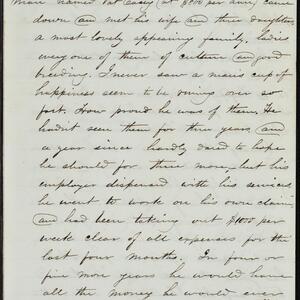 man named Pat Casey (at $8.00 per day) came
down and met his wife and three daughters
a most lovely appearing family, ladies
everyone of them of culture and good
breeding. I never saw a man's cup of
happiness seem to be runing over so
fast. How proud he was of them. He
hadn't seen them for three years and
a year since hardly dared to hope
he should for three more, but his
employer dispensed with his services
he went to work on his own claim
and had been taking out $100 per
week clear of all expenses for the
last four months. In four or
five more years he would have
all the money he would ever